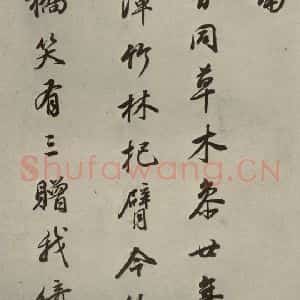 同草木廿年
潭竹林把臂今
笑有三贈我
Shufawang.CN